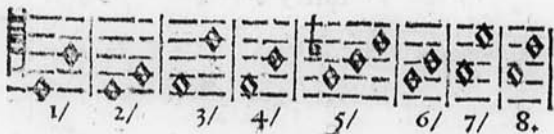 1/ 2/ 3/ 4/ 5/ 6/ 7/ 8.